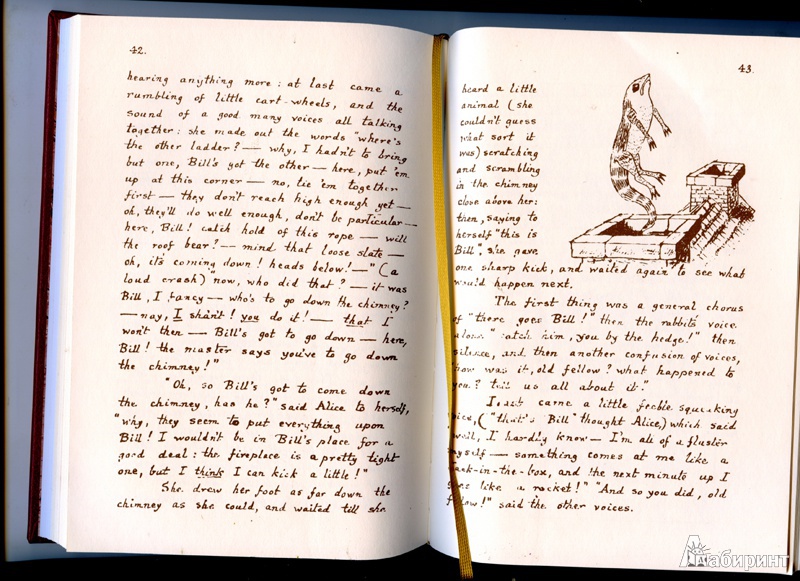 42.
hearing anything more: at last came a
rumbling of little cart-wheels, and the
sound of a good many voices all talking
together: she made out the words "where's
the other ladder? — why, I hadn't to bring
but one, Bill's got the other — here, put 'em
up at this corner — no, tie 'em together
first — they don't reach high enough yet —
oh, they'll do well enough, don't be particular —
here, Bill! catch hold of this rope — will
the roof bear? — mind that loose slate —
oh, it's coming down! heads below! —" (a
loud crash) "now, who did that? — it was
Bill, I fancy — who's to go down the chimney?
— nay, I shan't! you do it! — that I
won't then — Bill's got to go down — here,
Bill! the master says you've to go down
the chimney!"
"Oh, so Bill's got to come down
the chimney, has he?" said Alice to herself,
"why, they seem to put everything upon
Bill! I wouldn't be in Bill's place for a
good deal: the fireplace is a pretty tight
one, but I think I can kick a little!"
She drew her foot as far down the
chimney as she could, and waited till she
43.
heard a little
animal (she
couldn't guess
what sort it
was) scratching
and scrambling
in the chimney
close above her:
then, saying to
herself "this is
Bill", she gave
one sharp kick, and waited again to see what
would happen next.
The first thing was a general chorus
of "there goes Bill!" then the rabbit's voice
alone "catch him, you by the hedge!" then
silence, and then another confusion of voices,
"how was it, old fellow? what happened to
you? tell us all about it."
Last came a little feeble squeaking
voice, ("that's Bill" thought Alice,) which said
"well, I hardly know — I'm all of a fluster
myself — something comes at me like a
Jack-in-the-box, and the next minute up I
goes like a rocket!" "And so you did, old
fellow!" said the other voices.
Лабиринт